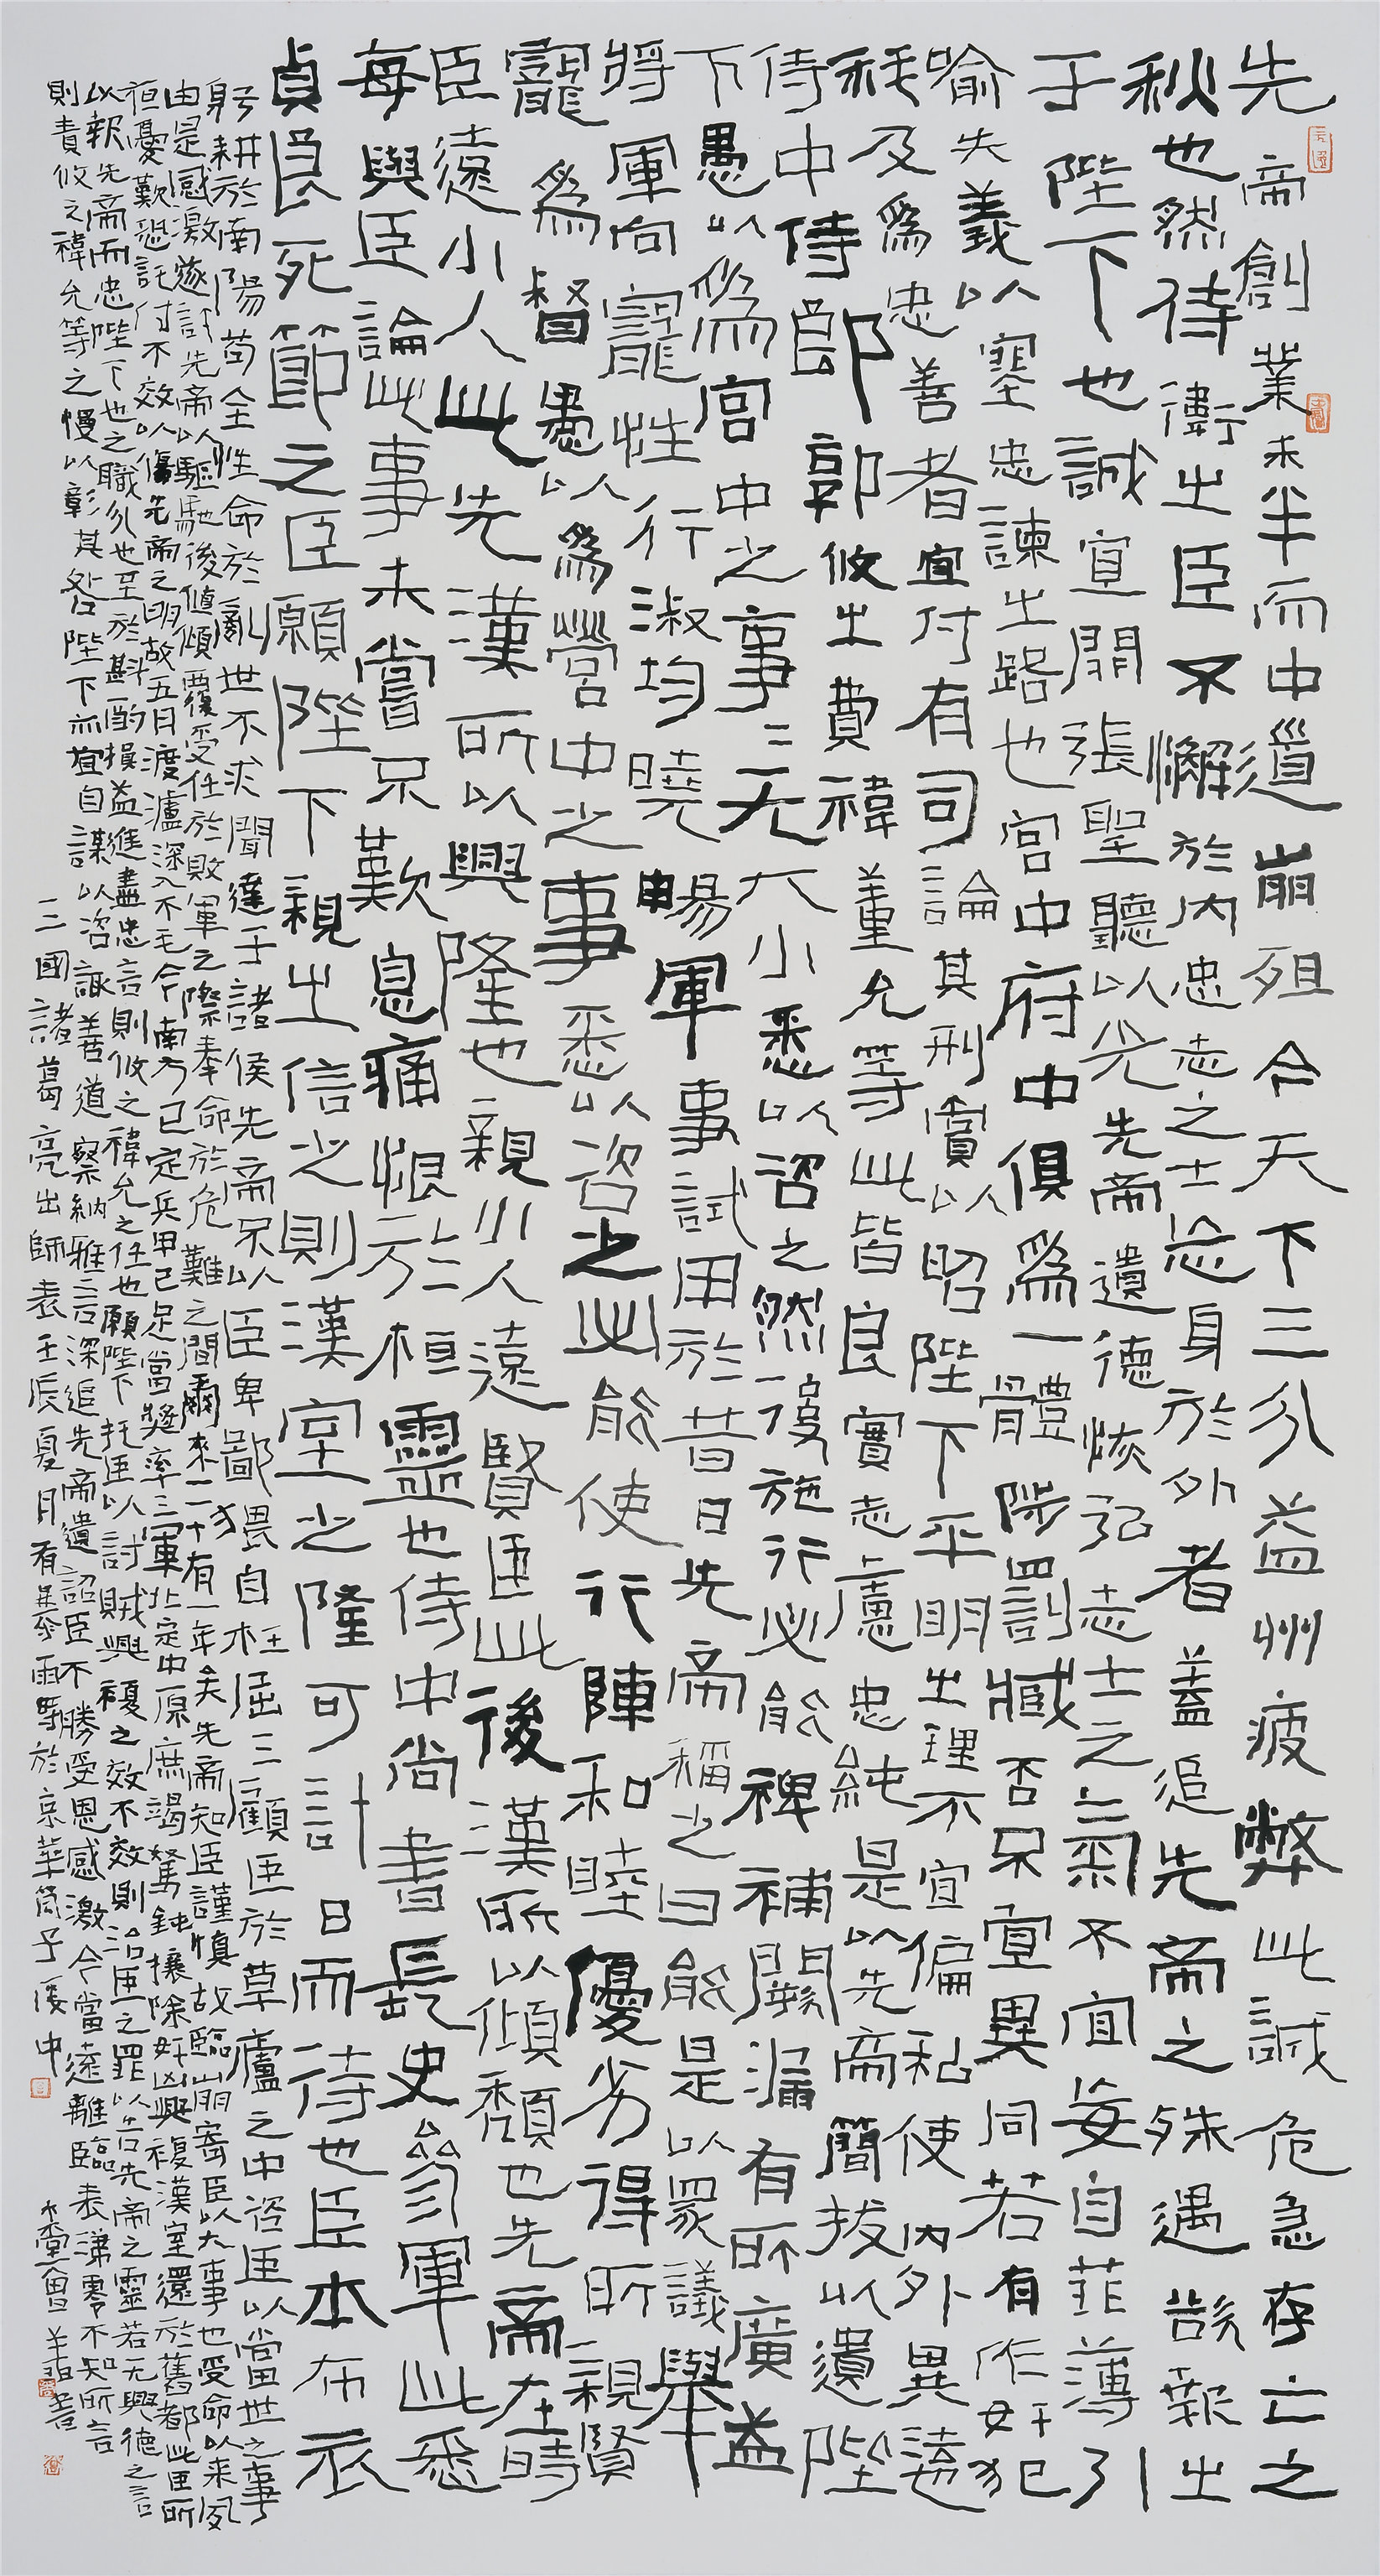 先帝創業未半而中道崩殂今天下三分益州疲弊此誠危急存亡之
秋也然侍衛之臣不懈於内忠志之士忘身於外者蓋追先帝之殊遇欲報之
于陛下也誠宜開張聖聽以光先帝遺德恢弘志士之氣不宜妄自菲薄引
喻失義以塞忠諫之路也宮中府中俱爲一體陟罰臧否不宜異同若有作奸犯
科及爲忠善者宜付有司論其刑賞以昭陛下平明之理不宜偏私使内外異法也
侍中侍郎郭攸之費禕董允等此皆良實志慮忠純是以先帝簡拔以遺陛
下愚以爲宮中之事二无大小悉以諮之然後施行必能裨補闕漏有所廣益
將軍向寵性行淑均曉暢軍事試用於昔日先帝稱之曰能是以眾議舉
寵爲督愚以爲營中之事悉以咨之必能使行陣和睦優劣得所親賢
臣遠小人此先漢所以興隆也親小人遠賢臣此後漢所以傾頹也先帝在時
每與臣論此事未嘗不歎息痛恨於桓靈也侍中尚書長史參軍此悉
貞良死節之臣願陛下親之信之則漢室之隆可計日而待也臣本布衣
躬耕於南陽苟全性命於亂世不求聞達于諸侯先帝不以臣卑鄙猥自枉屈三顧臣於草廬之中咨臣以當世之事
由是感激遂許先帝以驅馳後值傾覆受任於敗軍之際奉命於危難之間爾來二十有一年矣先帝知臣謹慎故臨崩寄臣以大事也受命以來夙
夜憂歎恐託付不效以傷先帝之明故五月渡瀘深入不毛今南方已定兵甲已足當獎率三軍北定中原庶竭駑鈍攘除奸凶興複漢室還於舊都此臣所
以報先帝而忠陛下也之職分也至於斟酌損益進盡忠言則攸之禕允之任也願陛下托臣以討賊興複之效不效則治臣之罪以告先帝之靈若无興德之言
則責攸之禕允等之慢以彰其咎陛下亦宜自謀以咨諏善道察納雅言深追先帝遺詔臣不勝受恩感激今當遠離臨表涕零不知所言
三國諸葛亮出師表壬辰夏月有暴雨等於京華筒子樓中